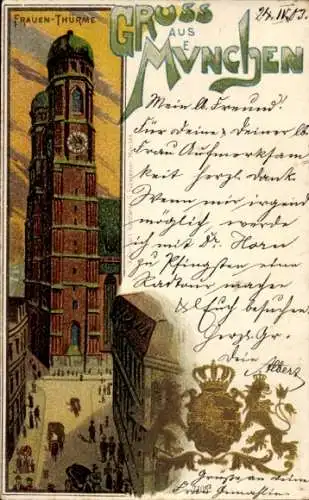 FRAUEN-THÜRME
GRUSS
AUS
MÜNCHEN
24. IV. 03.
Mein lb. Freund!
Für Deine & Deiner lb.
Frau Aufmerksam
keit herzl. Dank.
Wenn mir irgend
möglich, werde
ich mit Dr. Horn
zu Pfingsten eine
Radtour machen
& Euch besuchen
Herzl. Gr.
Dein
Albert
Grüsse an Deine
Frau Gemahlin